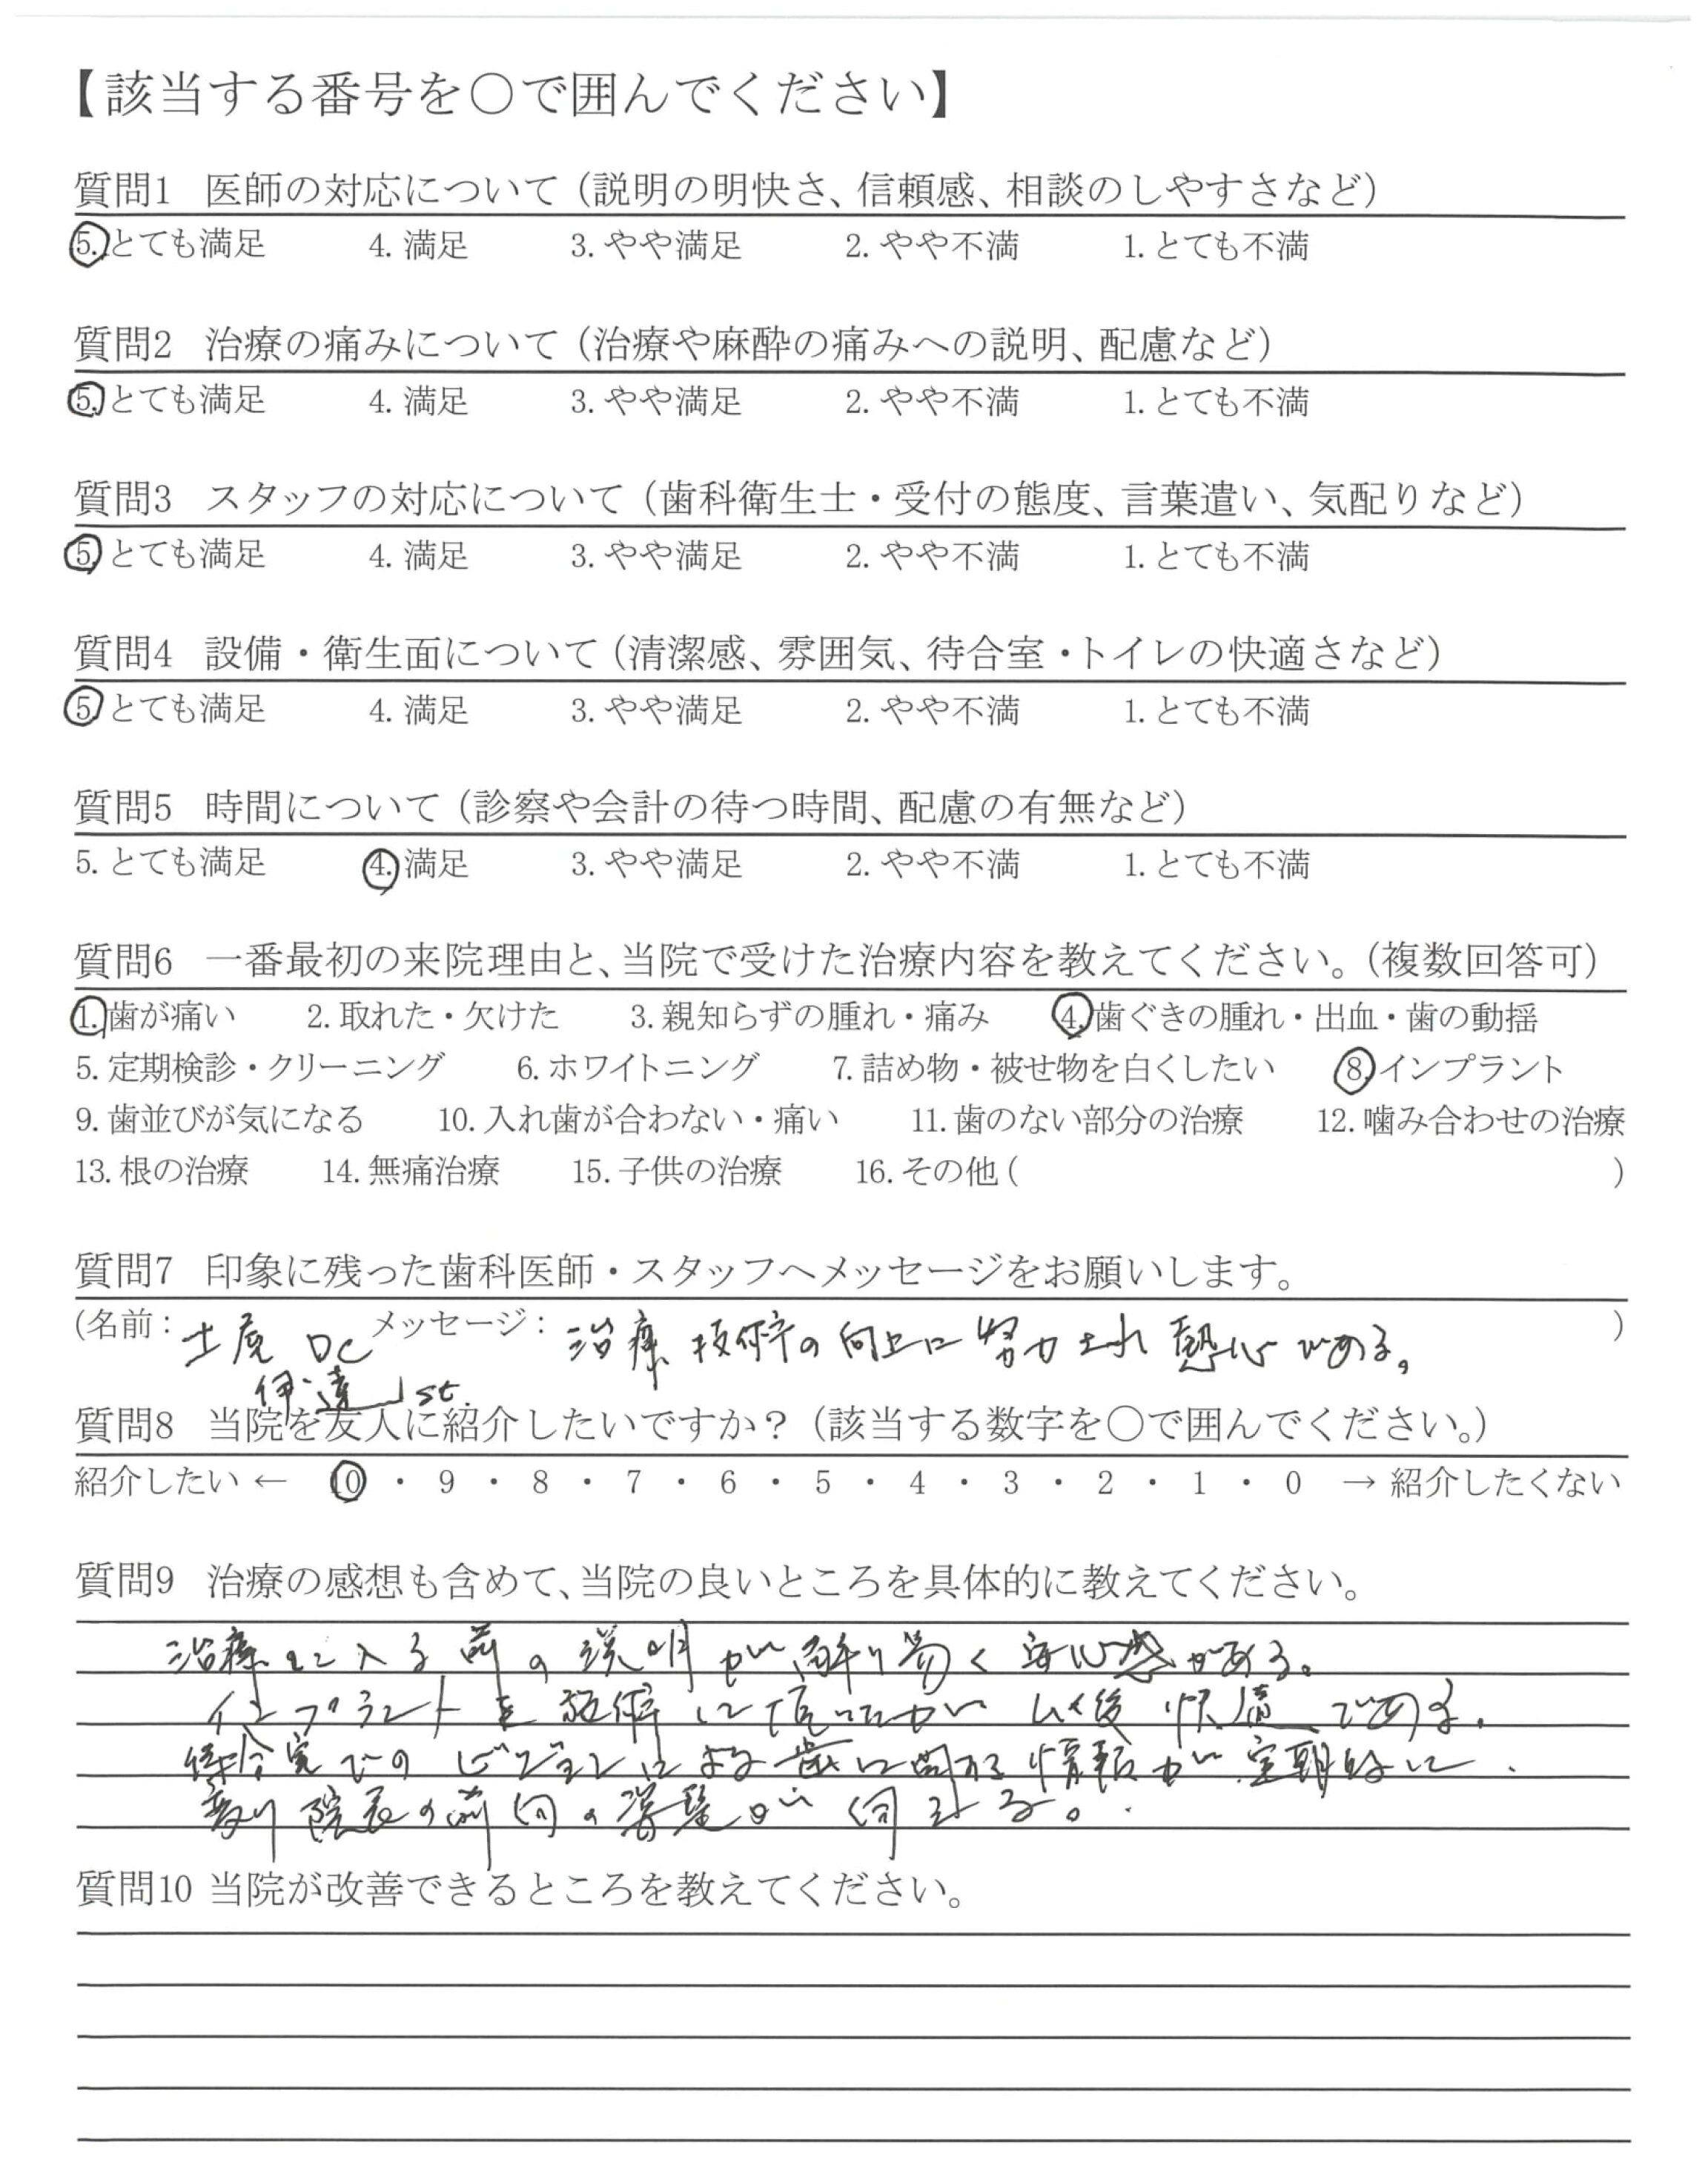 【該当する番号を○で囲んでください】
質問1 医師の対応について（説明の明快さ、信頼感、相談のしやすさなど）
5. とても満足 4. 満足 3. やや満足 2. やや不満 1. とても不満
質問2 治療の痛みについて（治療や麻酔の痛みへの説明、配慮など）
5. とても満足 4. 満足 3. やや満足 2. やや不満 1. とても不満
質問3 スタッフの対応について（歯科衛生士・受付の態度、言葉遣い、気配りなど）
5. とても満足 4. 満足 3. やや満足 2. やや不満 1. とても不満
質問4 設備・衛生面について（清潔感、雰囲気、待合室・トイレの快適さなど）
5. とても満足 4. 満足 3. やや満足 2. やや不満 1. とても不満
質問5 時間について（診察や会計の待つ時間、配慮の有無など）
5. とても満足 4. 満足 3. やや満足 2. やや不満 1. とても不満
質問6 一番最初の来院理由と、当院で受けた治療内容を教えてください。（複数回答可）
1. 歯が痛い 2. 取れた・欠けた 3. 親知らずの腫れ・痛み 4. 歯ぐきの腫れ・出血・歯の動揺
5. 定期検診・クリーニング 6. ホワイトニング 7. 詰め物・被せ物を白くしたい 8. インプラント
9. 歯並びが気になる 10. 入れ歯が合わない・痛い 11. 歯のない部分の治療 12. 噛み合わせの治療
13. 根の治療 14. 無痛治療 15. 子供の治療 16. その他 ( )
質問7 印象に残った歯科医師・スタッフへメッセージをお願いします。
(名前： 土尾 DC メッセージ： 治療技術の向上に努力され熱心である。 )
伊達 st.
質問8 当院を友人に紹介したいですか？（該当する数字を○で囲んでください。）
紹介したい ← 10 ・ 9 ・ 8 ・ 7 ・ 6 ・ 5 ・ 4 ・ 3 ・ 2 ・ 1 ・ 0 → 紹介したくない
質問9 治療の感想も含めて、当院の良いところを具体的に教えてください。
治療に入る前の説明が解り易く安心感がある。
インプラントを施術して頂いたが以後快適である。
待合室でのビジョンによる歯に関する情報が定期的に
院長の前向の 伺える。
質問10 当院が改善できるところを教えてください。